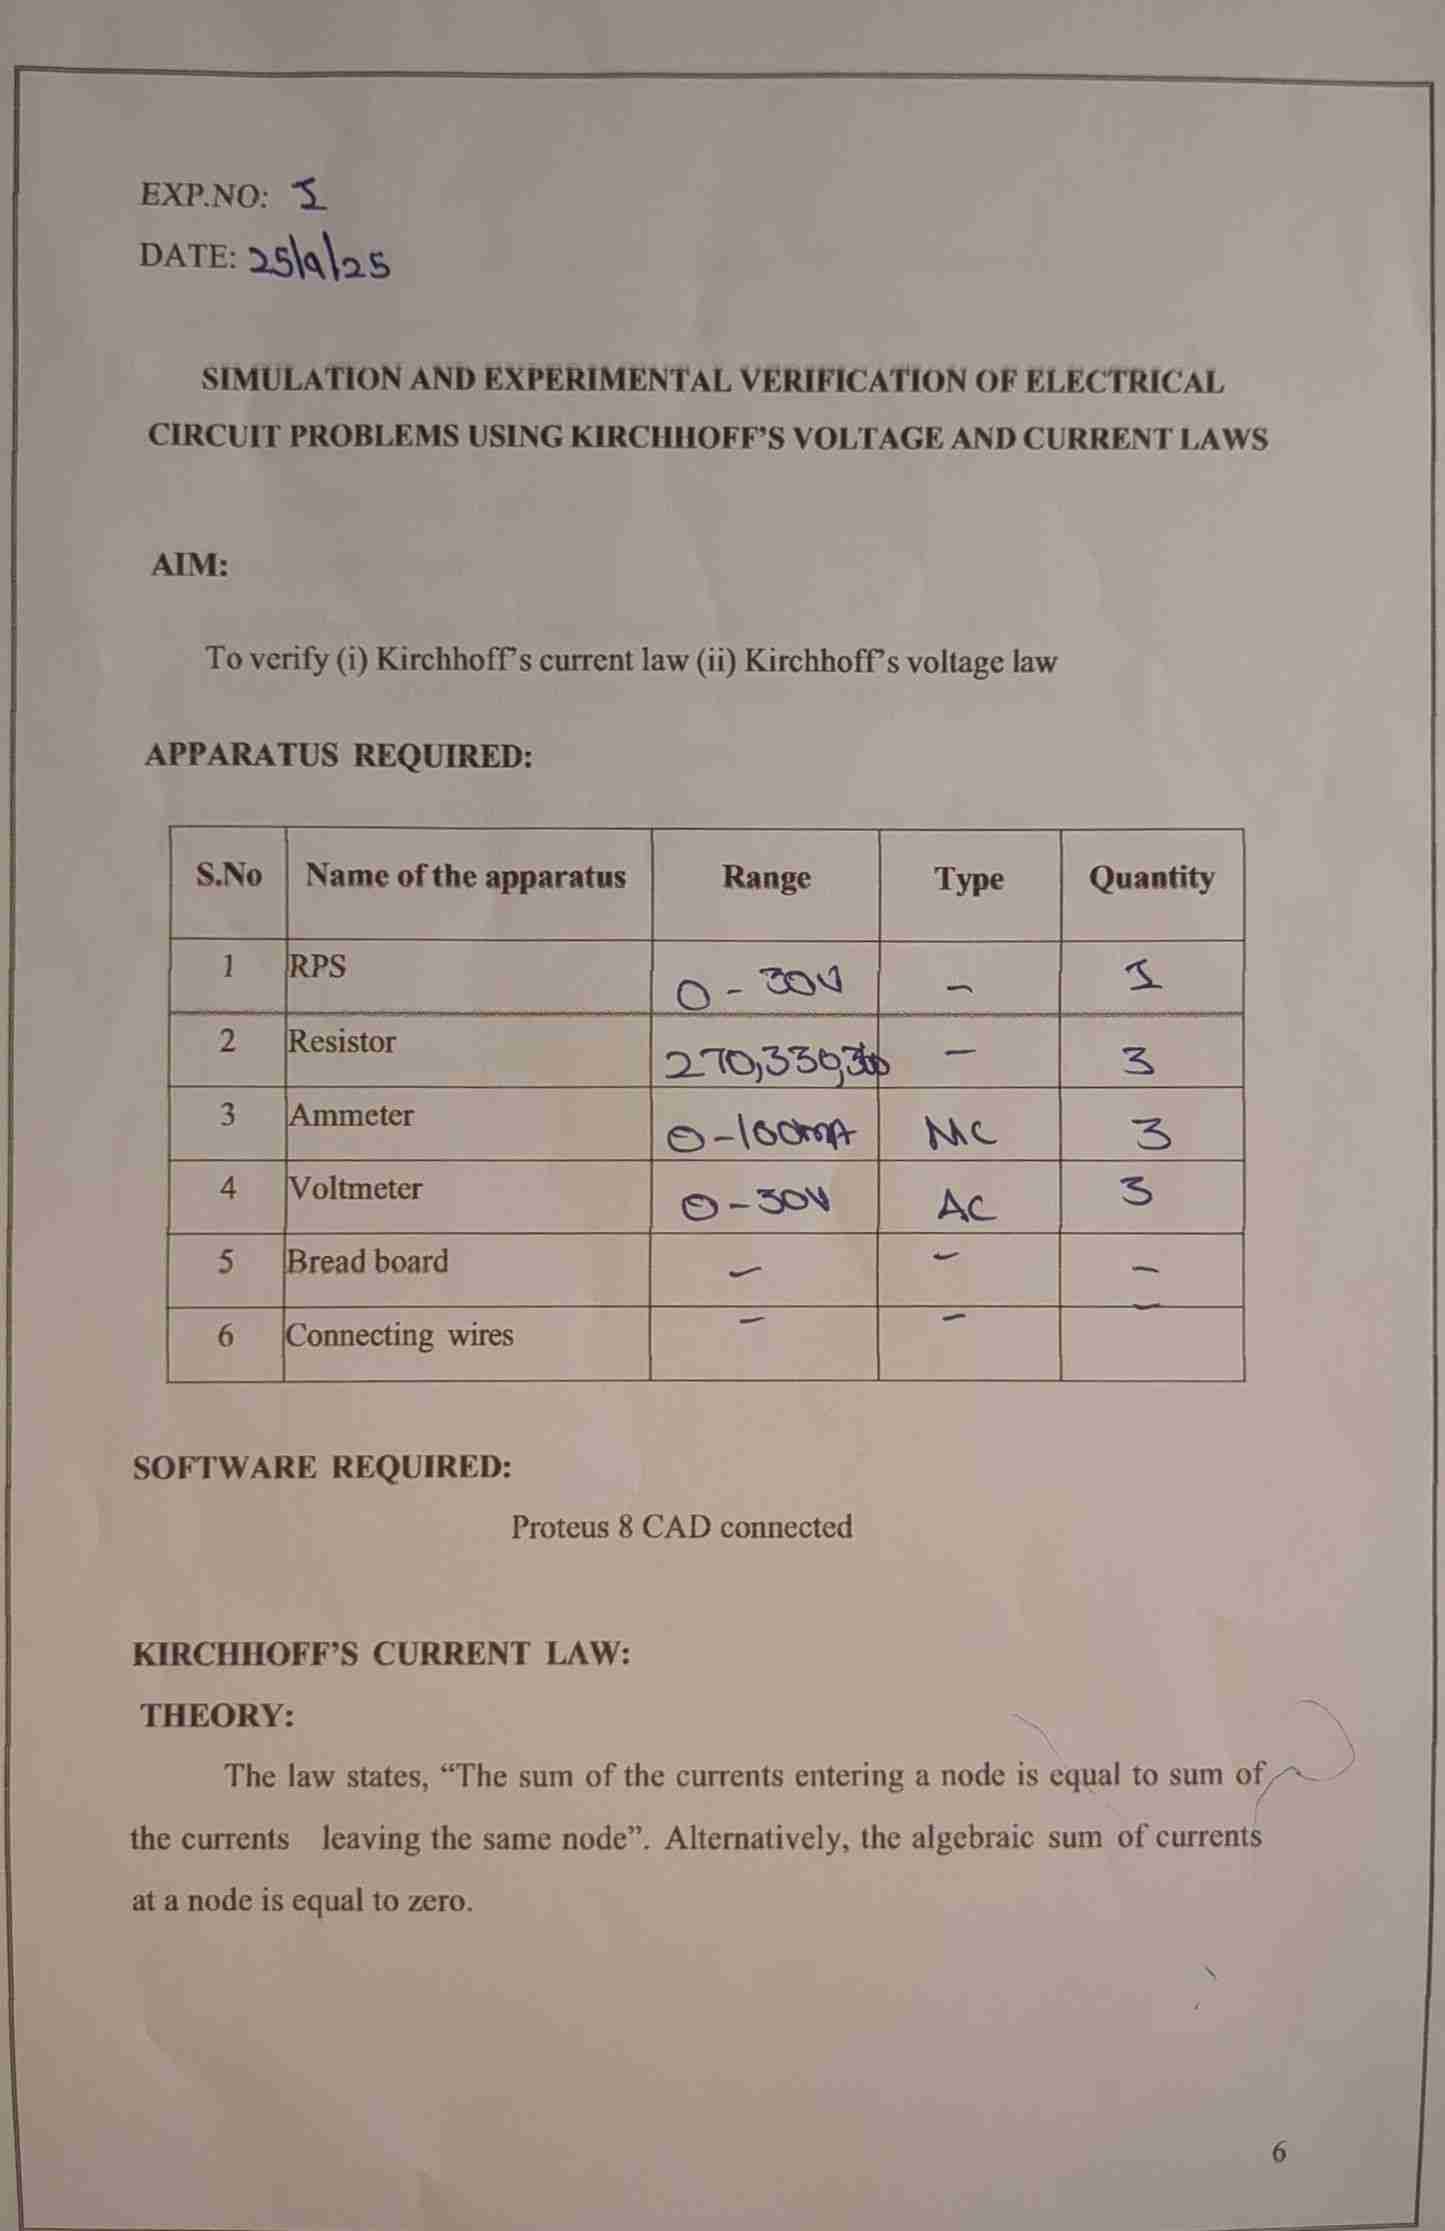 EXP.NO: I
DATE: 25/9/25
SIMULATION AND EXPERIMENTAL VERIFICATION OF ELECTRICAL
CIRCUIT PROBLEMS USING KIRCHHOFF'S VOLTAGE AND CURRENT LAWS
AIM:
To verify (i) Kirchhoff's current law (ii) Kirchhoff's voltage law
APPARATUS REQUIRED:
S.No Name of the apparatus Range Type Quantity
1 RPS 0 - 30V - I
2 Resistor 270,330, - 3
3 Ammeter 0-100mA MC 3
4 Voltmeter 0-30V AC 3
5 Bread board - - -
6 Connecting wires - - -
SOFTWARE REQUIRED:
Proteus 8 CAD connected
KIRCHHOFF'S CURRENT LAW:
THEORY:
The law states, “The sum of the currents entering a node is equal to sum of
the currents leaving the same node”. Alternatively, the algebraic sum of currents
at a node is equal to zero.
6